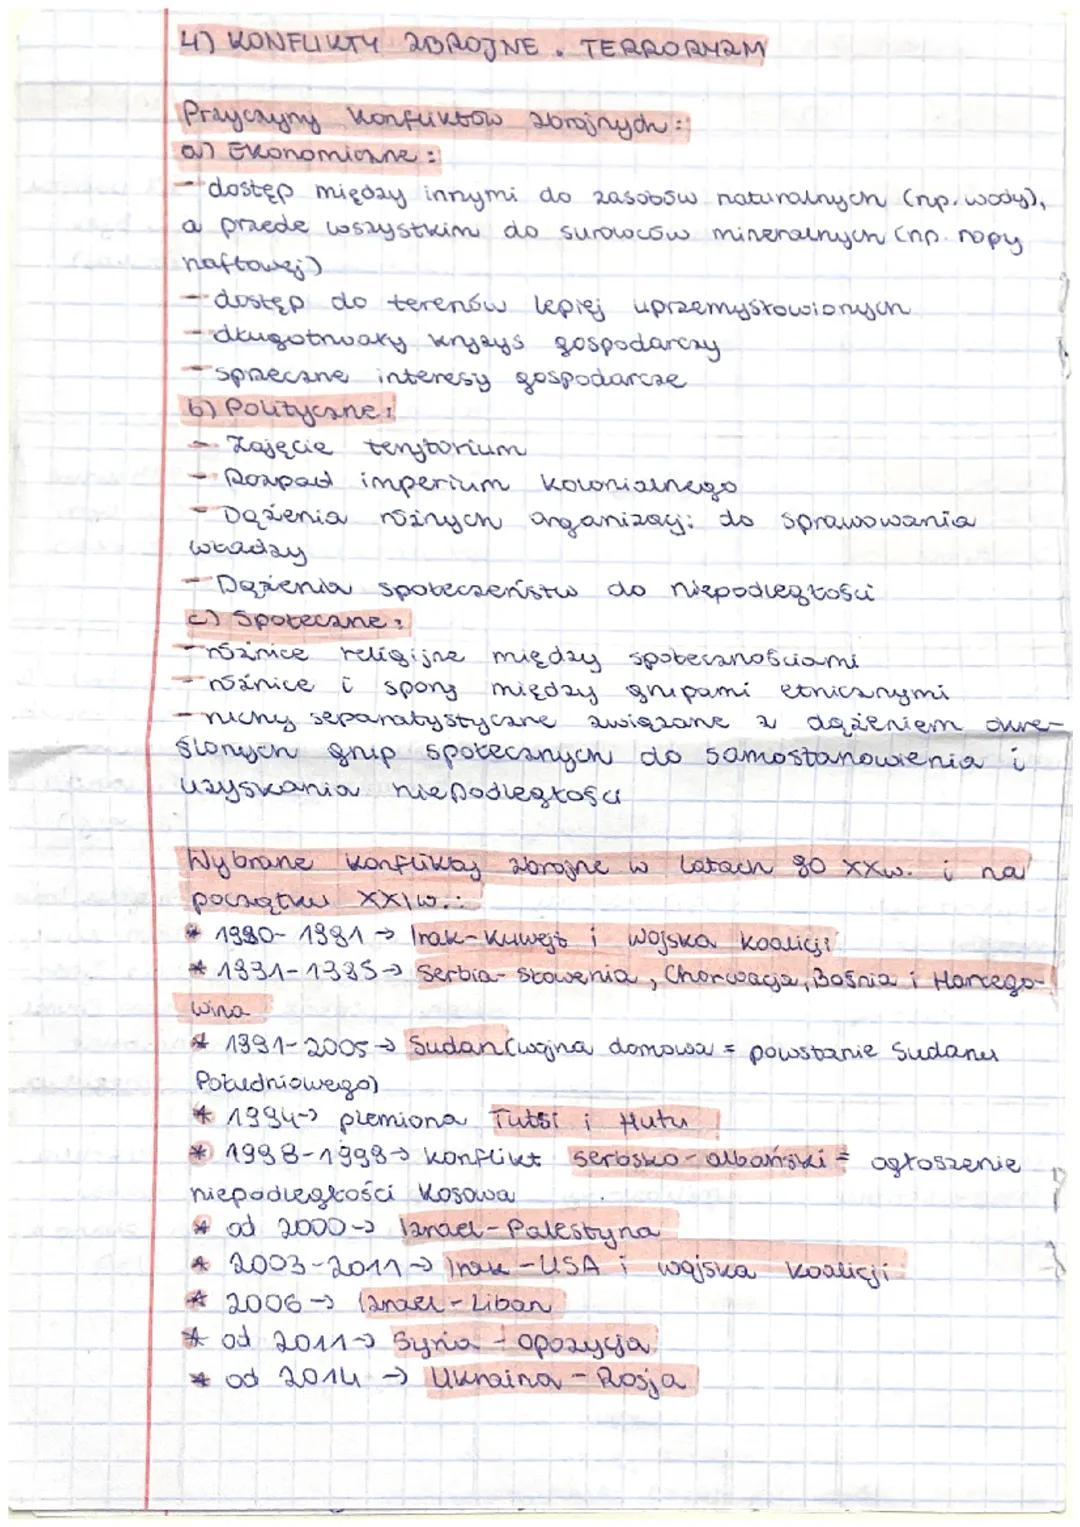 4) KONFLIKTY ZBROJNE. TERRORYZM
Przyczyny konfliktów zbrojnych:
a) Ekonomiczne:
- dostęp między innymi do zasobów naturalnych (np. wody),
a przede wszystkim do surowców mineralnych (np. ropy
naftowej)
- dostęp do terenów lepiej uprzemysłowionych
- długotrwały kryzys gospodarczy
- sprzeczne interesy gospodarcze
b) Polityczne:
- Zajęcie terytorium
- Rozpad imperium kolonialnego
- Dążenia różnych organizacji do sprawowania
władzy
- Dążenia społeczeństw do niepodległości
c) Społeczne:
- różnice religijne między społecznościami
- różnice i spory między grupami etnicznymi
- ruchy separatystyczne związane z dążeniem okre-
ślonych grup społecznych do samostanowienia i
uzyskania niepodległości
Wybrane konflikty zbrojne w latach 90 XXw. i na
początku XXIw.:
* 1990-1991 → Irak-Kuwejt i wojska koalicji
* 1991-1995 → Serbia-Słowenia, Chorwacja, Bośnia i Hercego-
wina
* 1991-2005 → Sudan (wojna domowa = powstanie Sudanu
Południowego)
* 1994 → plemiona Tutsi i Hutu
* 1998-1999 → konflikt serbsko-albański = ogłoszenie
niepodległości Kosowa
* od 2000 → Izrael-Palestyna
* 2003-2011 → Irak-USA i wojska koalicji
* 2006 → Izrael-Liban
* od 2011 → Syria - opozycja
* od 2014 → Ukraina - Rosja